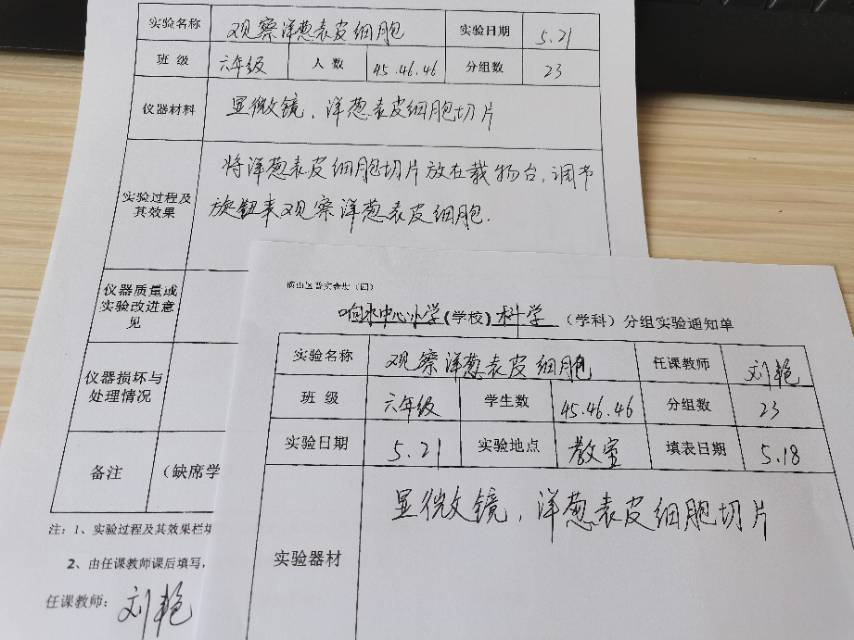 实验名称 观察洋葱表皮细胞 实验日期 5.21
班 级 六年级 人 数 45.46.46 分组数 23
仪器材料 显微镜，洋葱表皮细胞切片
实验过程及其效果 将洋葱表皮细胞切片放在载物台，调节
旋钮来观察洋葱表皮细胞.
仪器质量或
实验改进意
见
仪器损坏与
处理情况
备注 （缺席学
注：1、实验过程及其效果栏填
2、由任课教师课后填写，
任课教师：刘艳
响水中心小学（学校）科学（学科）分组实验通知单
实验名称 观察洋葱表皮细胞 任课教师 刘艳
班 级 六年级 学生数 45.46.46 分组数 23
实验日期 5.21 实验地点 教室 填表日期 5.18
实验器材 显微镜，洋葱表皮细胞切片